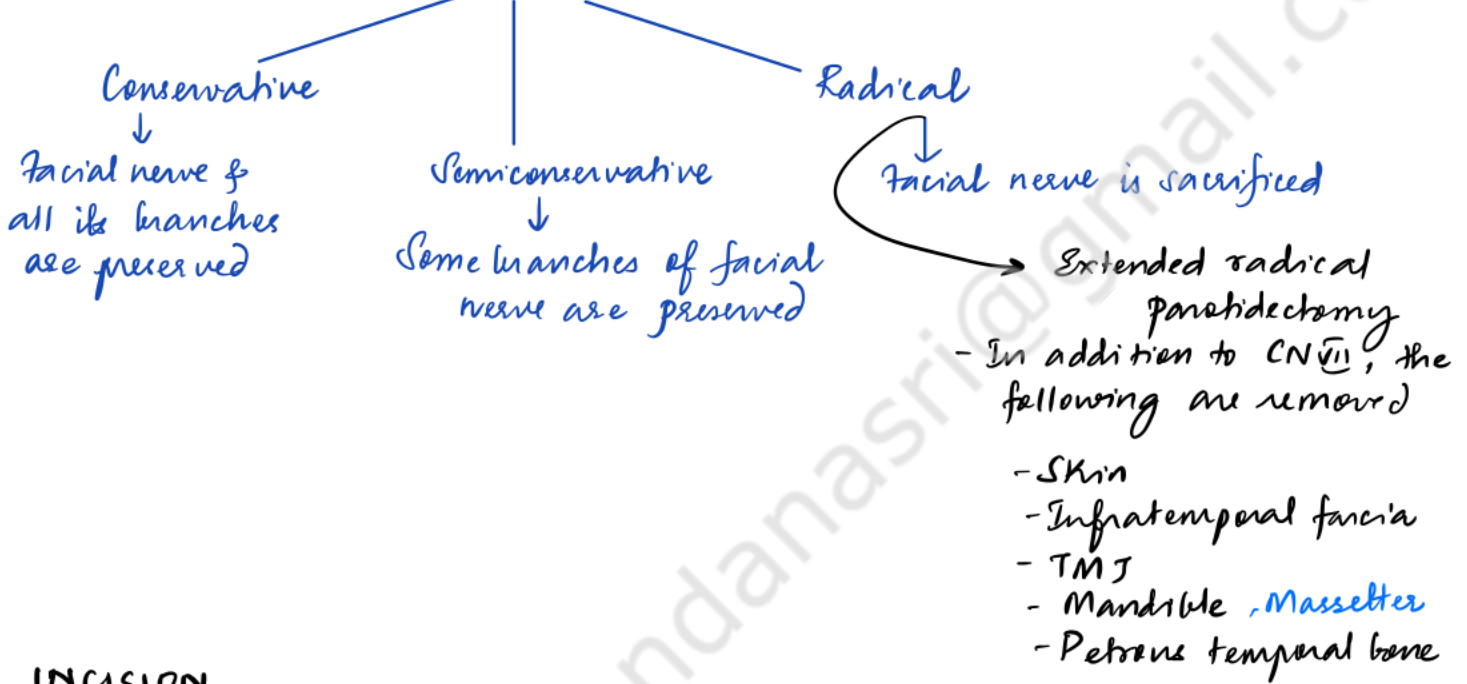 Conservative
↓
Facial nerve &
all its branches
are preserved
Semiconservative
↓
Some branches of facial
nerve are preserved
Radical
↓
Facial nerve is sacrificed
Extended radical
parotidectomy
- In addition to CN VII, the
following are removed
- Skin
- Infratemporal fascia
- TMJ
- Mandible, Masseter
- Petrous temporal bone
INCISION
ndanasri@gmail.c